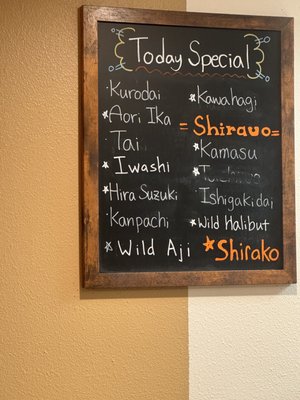 Today Special
·Kurodai
*Aori Ika
·Tai
*Iwashi
*Hira Suzuki
·Kanpachi
*Wild Aji
*Kawahagi
=Shirauo=
*Kamasu
·Ishigakidai
*Wild Halibut
*Shirako